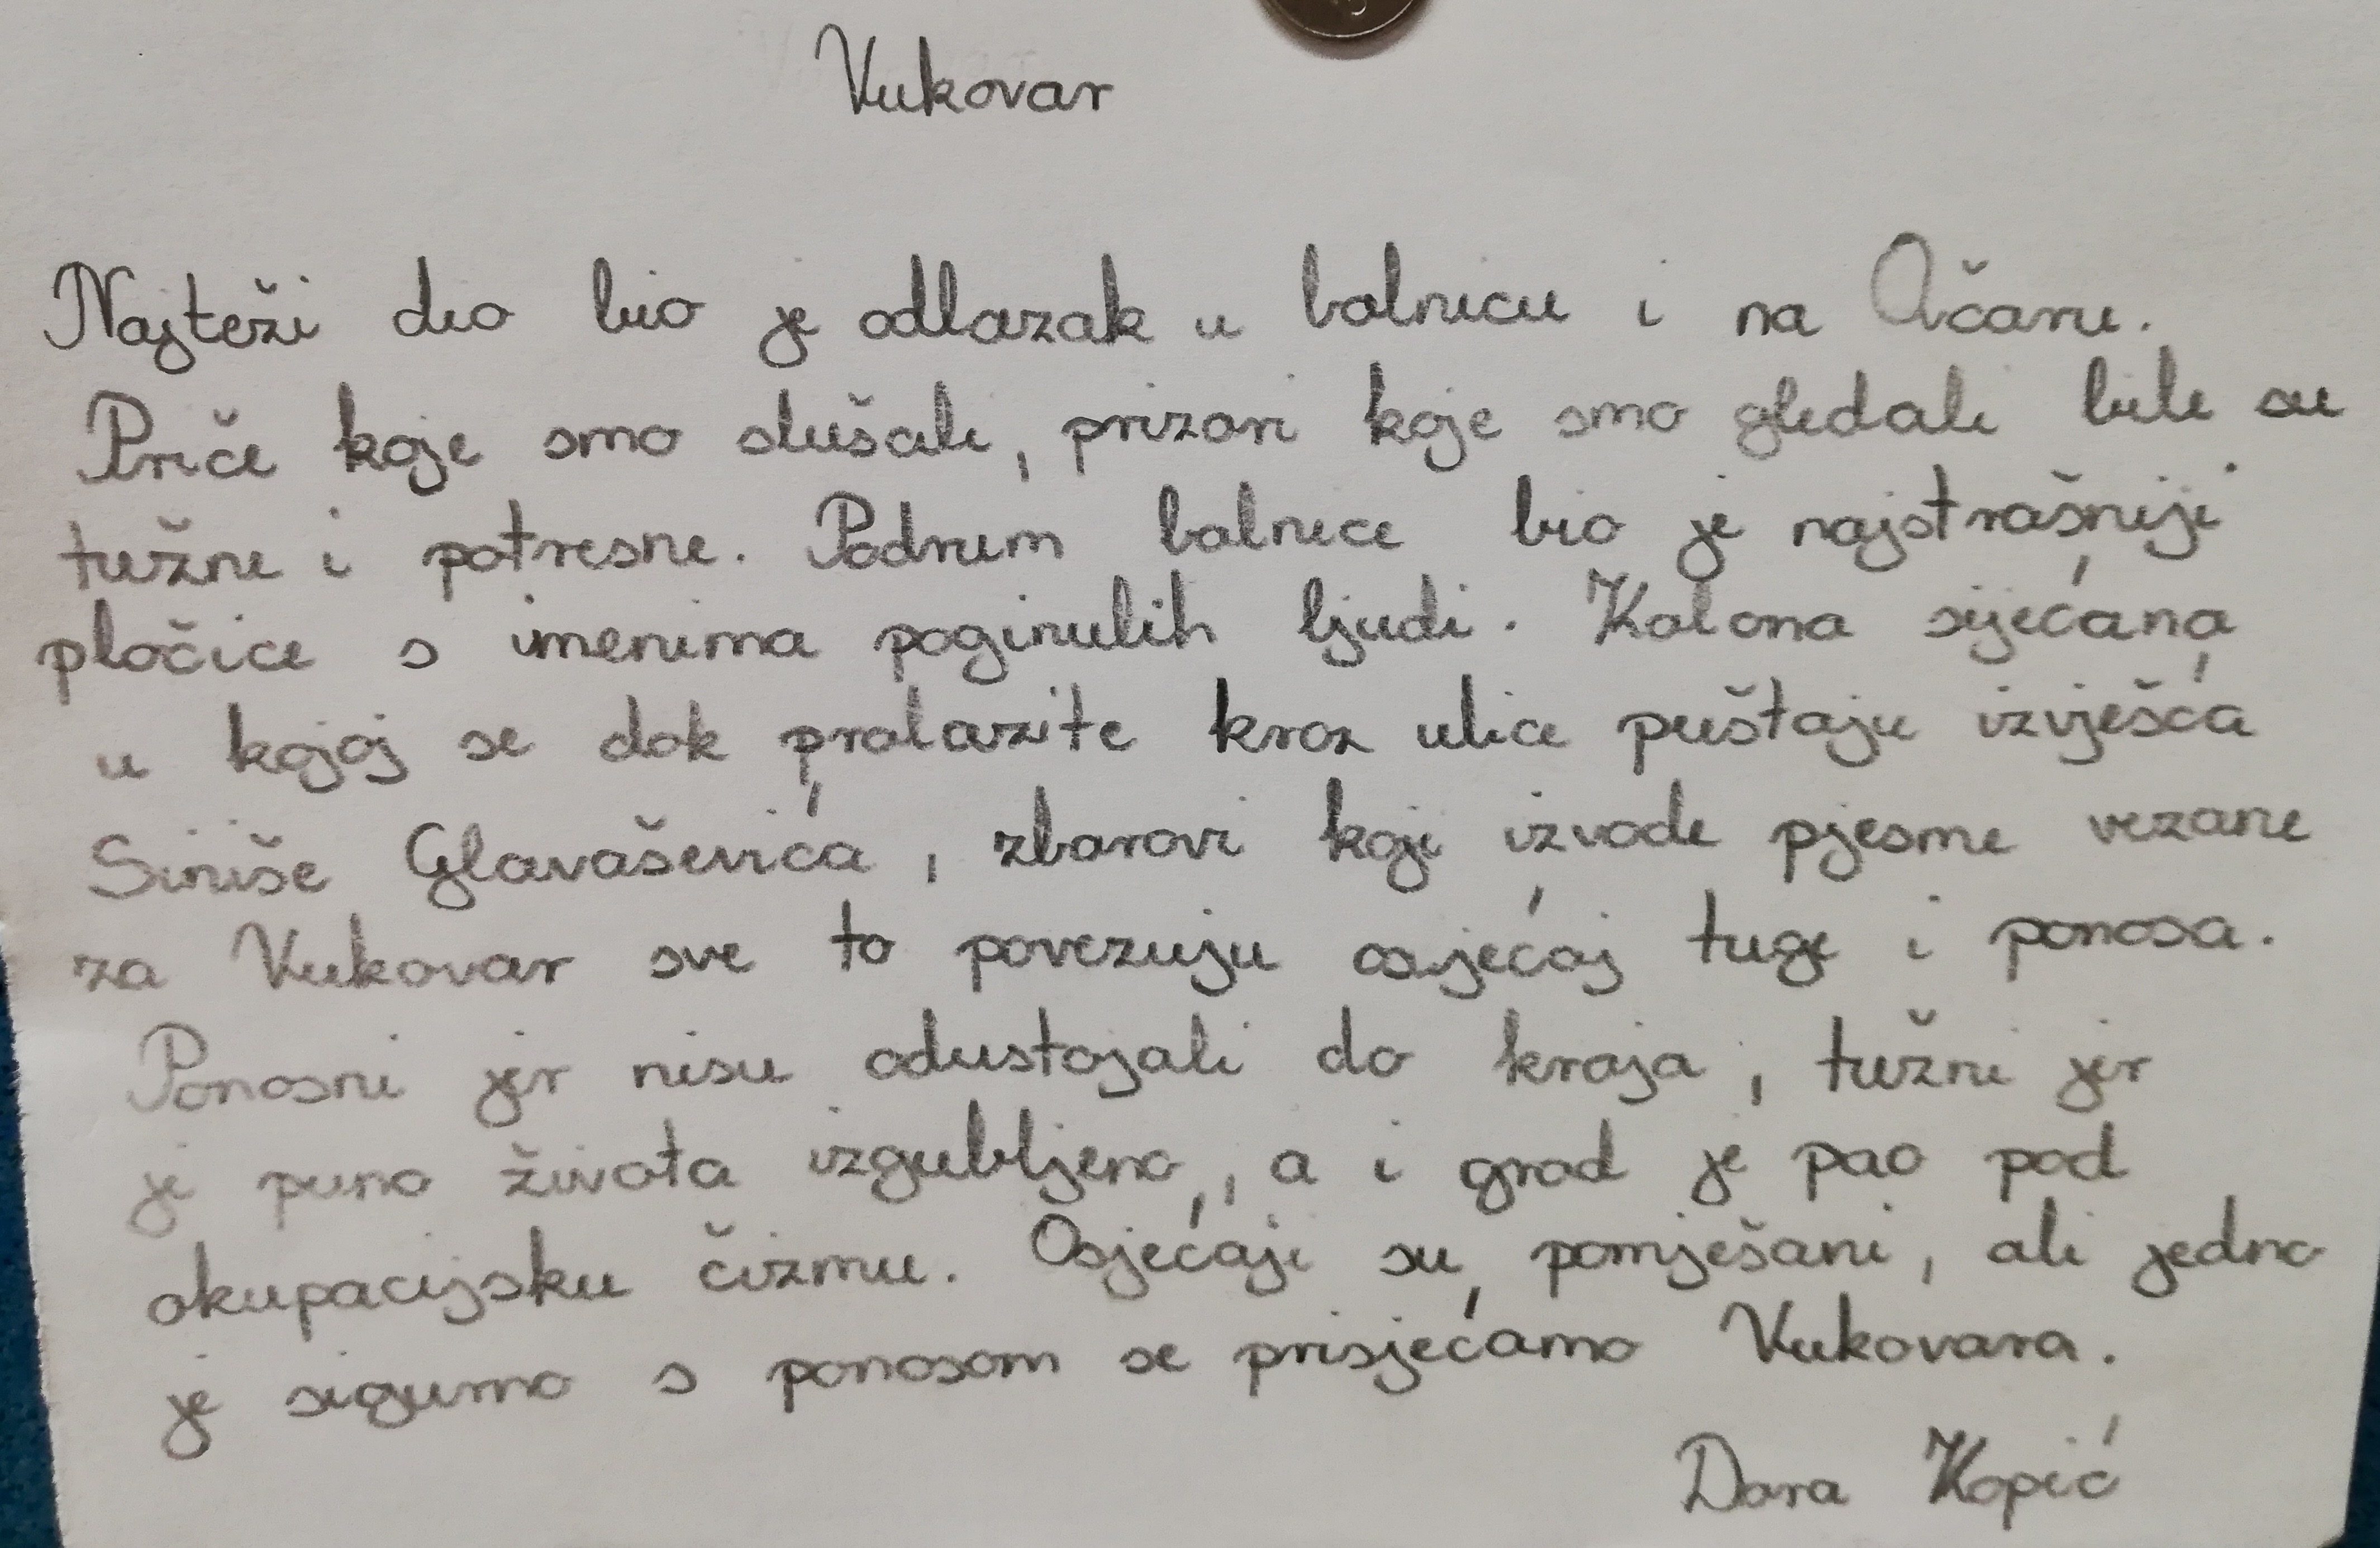 Vukovar
Najteži dio bio je odlazak u bolnicu i na Ovčaru.
Priče koje smo slušali, prizori koje smo gledali bile su
tužne i potresne. Podrum bolnice bio je najstrašniji
pločice s imenima poginulih ljudi. Kolona sijećana
u kojoj se dok prolazite kroz ulice puštaju izvješća
Siniše Glavaševića, zborovi koji izvode pjesme vezane
za Vukovar sve to povezuju osjećaj tuge i ponosa.
Ponosni jer nisu odustojali do kraja, tužni jer
je puno života izgubljeno, a i grad je pao pod
okupacijsku čizmu. Osjećaji su pomješani, ali jedno
je sigurno s ponosom se prisjećamo Vukovara.
Dora Kopić